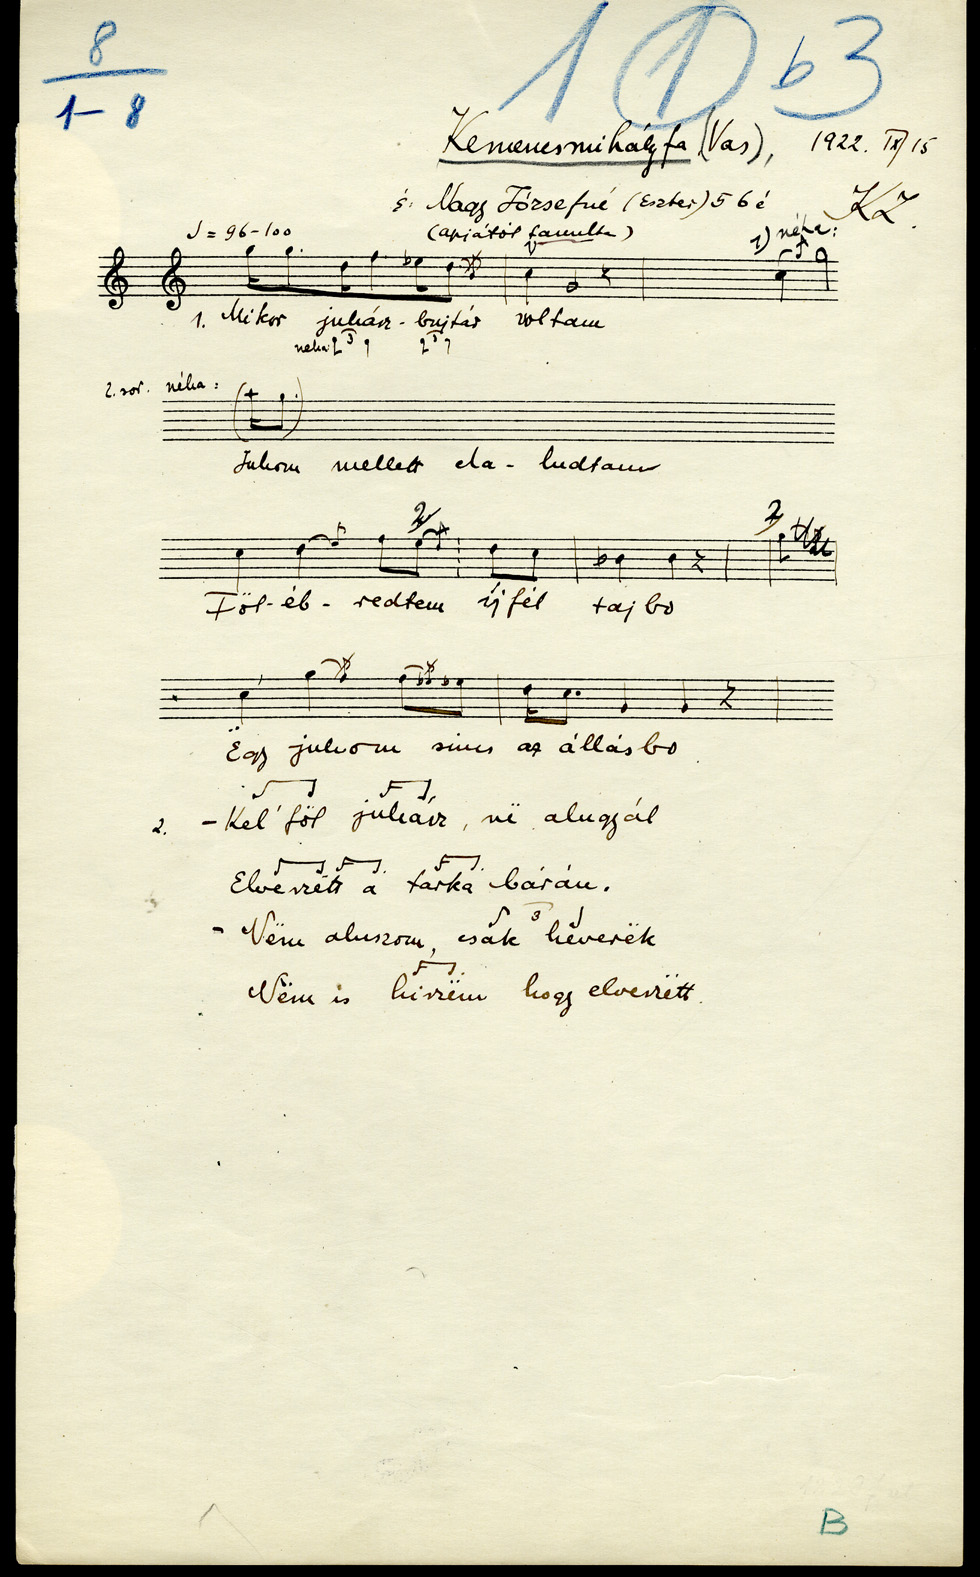 8
1-8
1 1 b3
Kemenesmihályfa (Vas), 1922. IX/15
é: Nagy Józsefné (Eszter) 56 é KZ.
♩ = 96-100 (apjától tanulta) 1) néha:
1. Mikor juhász-bujtár voltam
néha: 3 3
2. sor. néha:
Juhom mellett ela-ludtam
2 2
Föl-éb-redtem éjfél tajbo
Ëgy juhom sincs az állásbo
2. -Kel' föl juhász, në alugyál
Elveszëtt a tarka bárán.
- Nëm aluszom, csak heverëk
3
Nëm is hiszëm hogy elveszëtt.
B